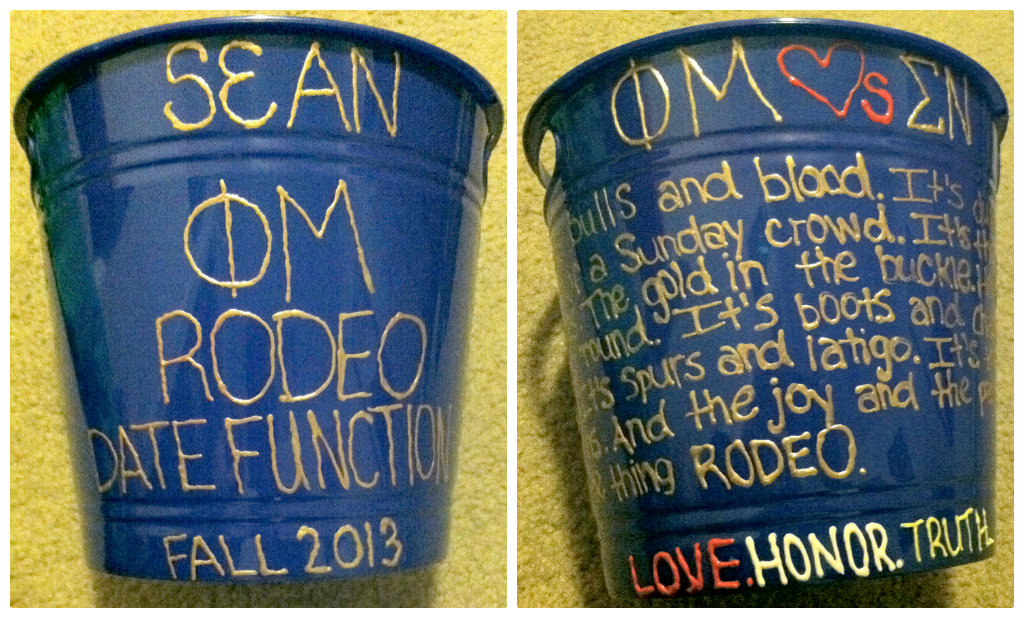 SEAN
ΦM
RODEO
DATE FUNCTION
FALL 2013
ΦM ♥s ΣN
bulls and blood. It's
a Sunday crowd. It's
The gold in the buckle.
It's boots and
spurs and iatigo. It's
And the joy and the
thing RODEO.
LOVE. HONOR. TRUTH.